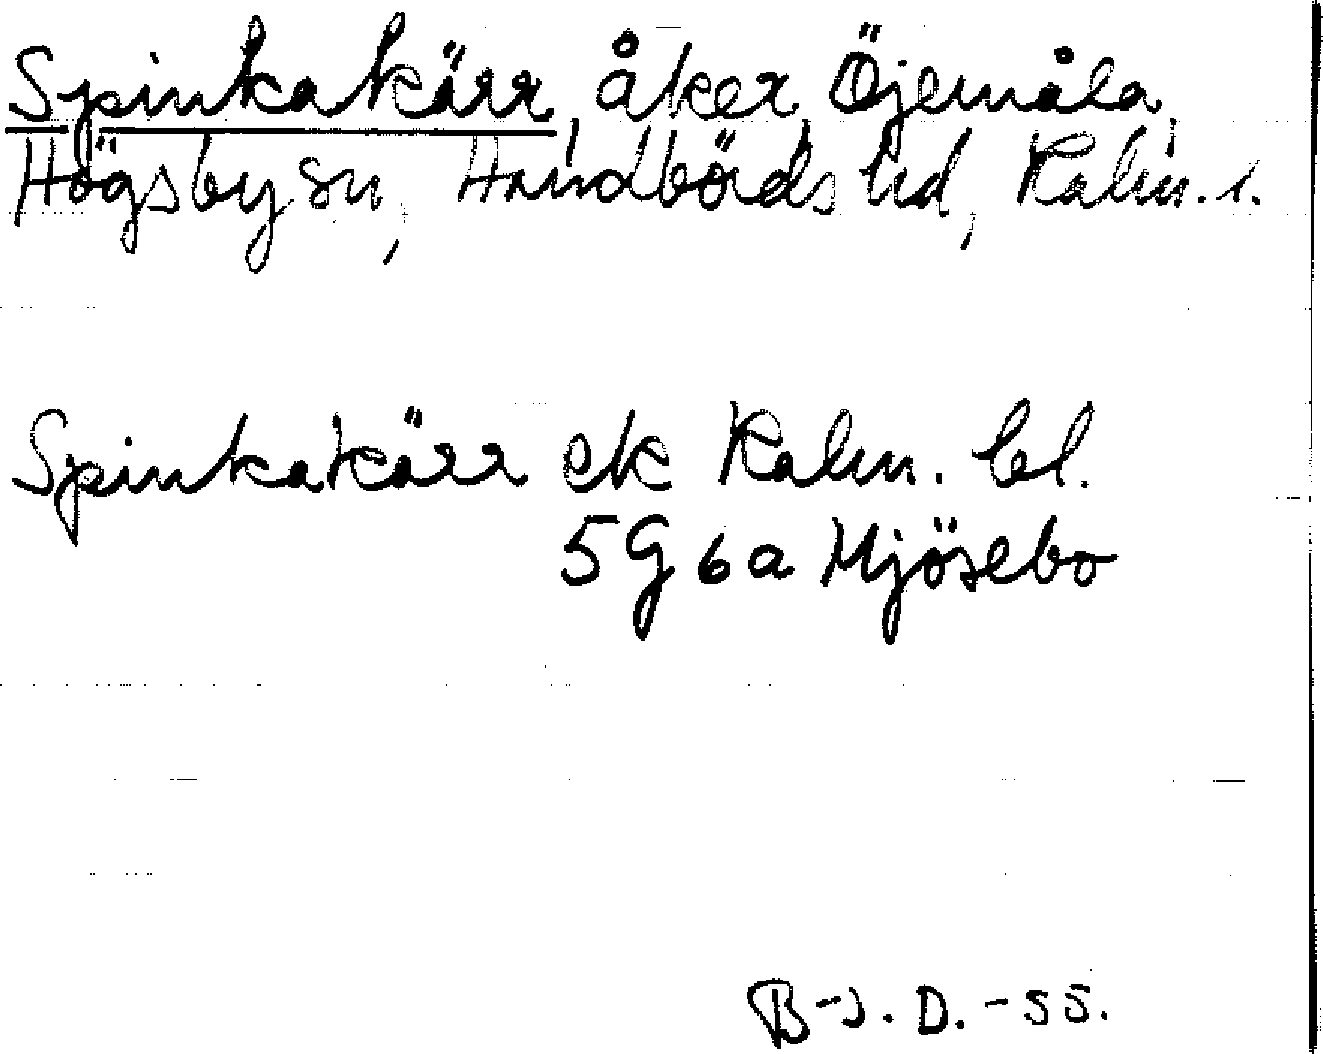 Spinkakärr, åker, Öjemåla,
Högsby sn, Handbörds hd, Kalm. l.
Spinkakärr ek Kalm. bl.
5G 6a Mjösebo
B-J. D. -55.